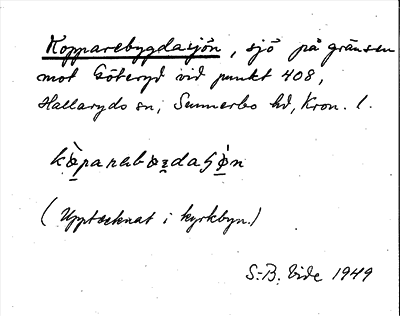 Kopparebygdasjön, sjö på gränsen
mot Göteryd vid punkt 408,
Hallaryds sn, Sunnerbo hd, Kron. l.
(Upptecknat i kyrkbyn.)
S.-B. Vide 1949